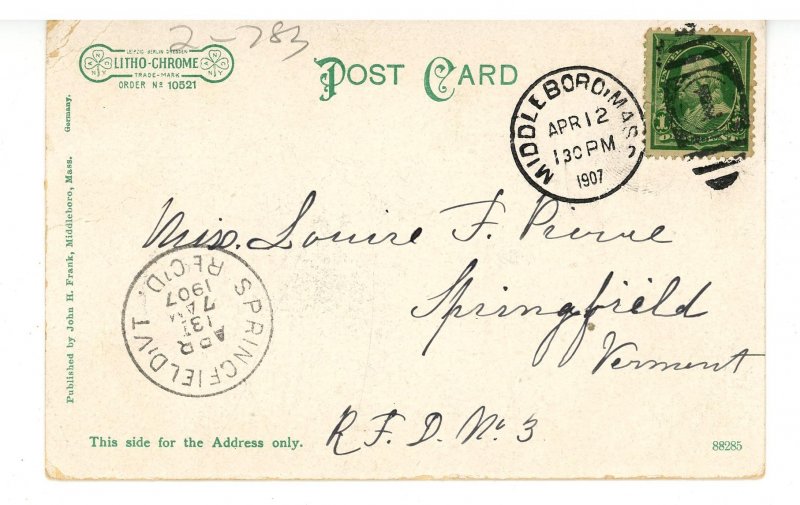 2-783
LEIPZIG BERLIN DRESDEN
LITHO-CHROME
TRADE-MARK
ORDER Nº 10521
POST CARD
MIDDLEBORO, MASS
APR 12
130 PM
1907
Germany.
Published by John H. Frank, Middleboro, Mass.
Miss. Louise F. Pierce
Springfield
Vermont
R.F.D. No. 3
SPRINGFIELD, VT
REC'D.
APR
13
7 AM
1907
This side for the Address only.
88285